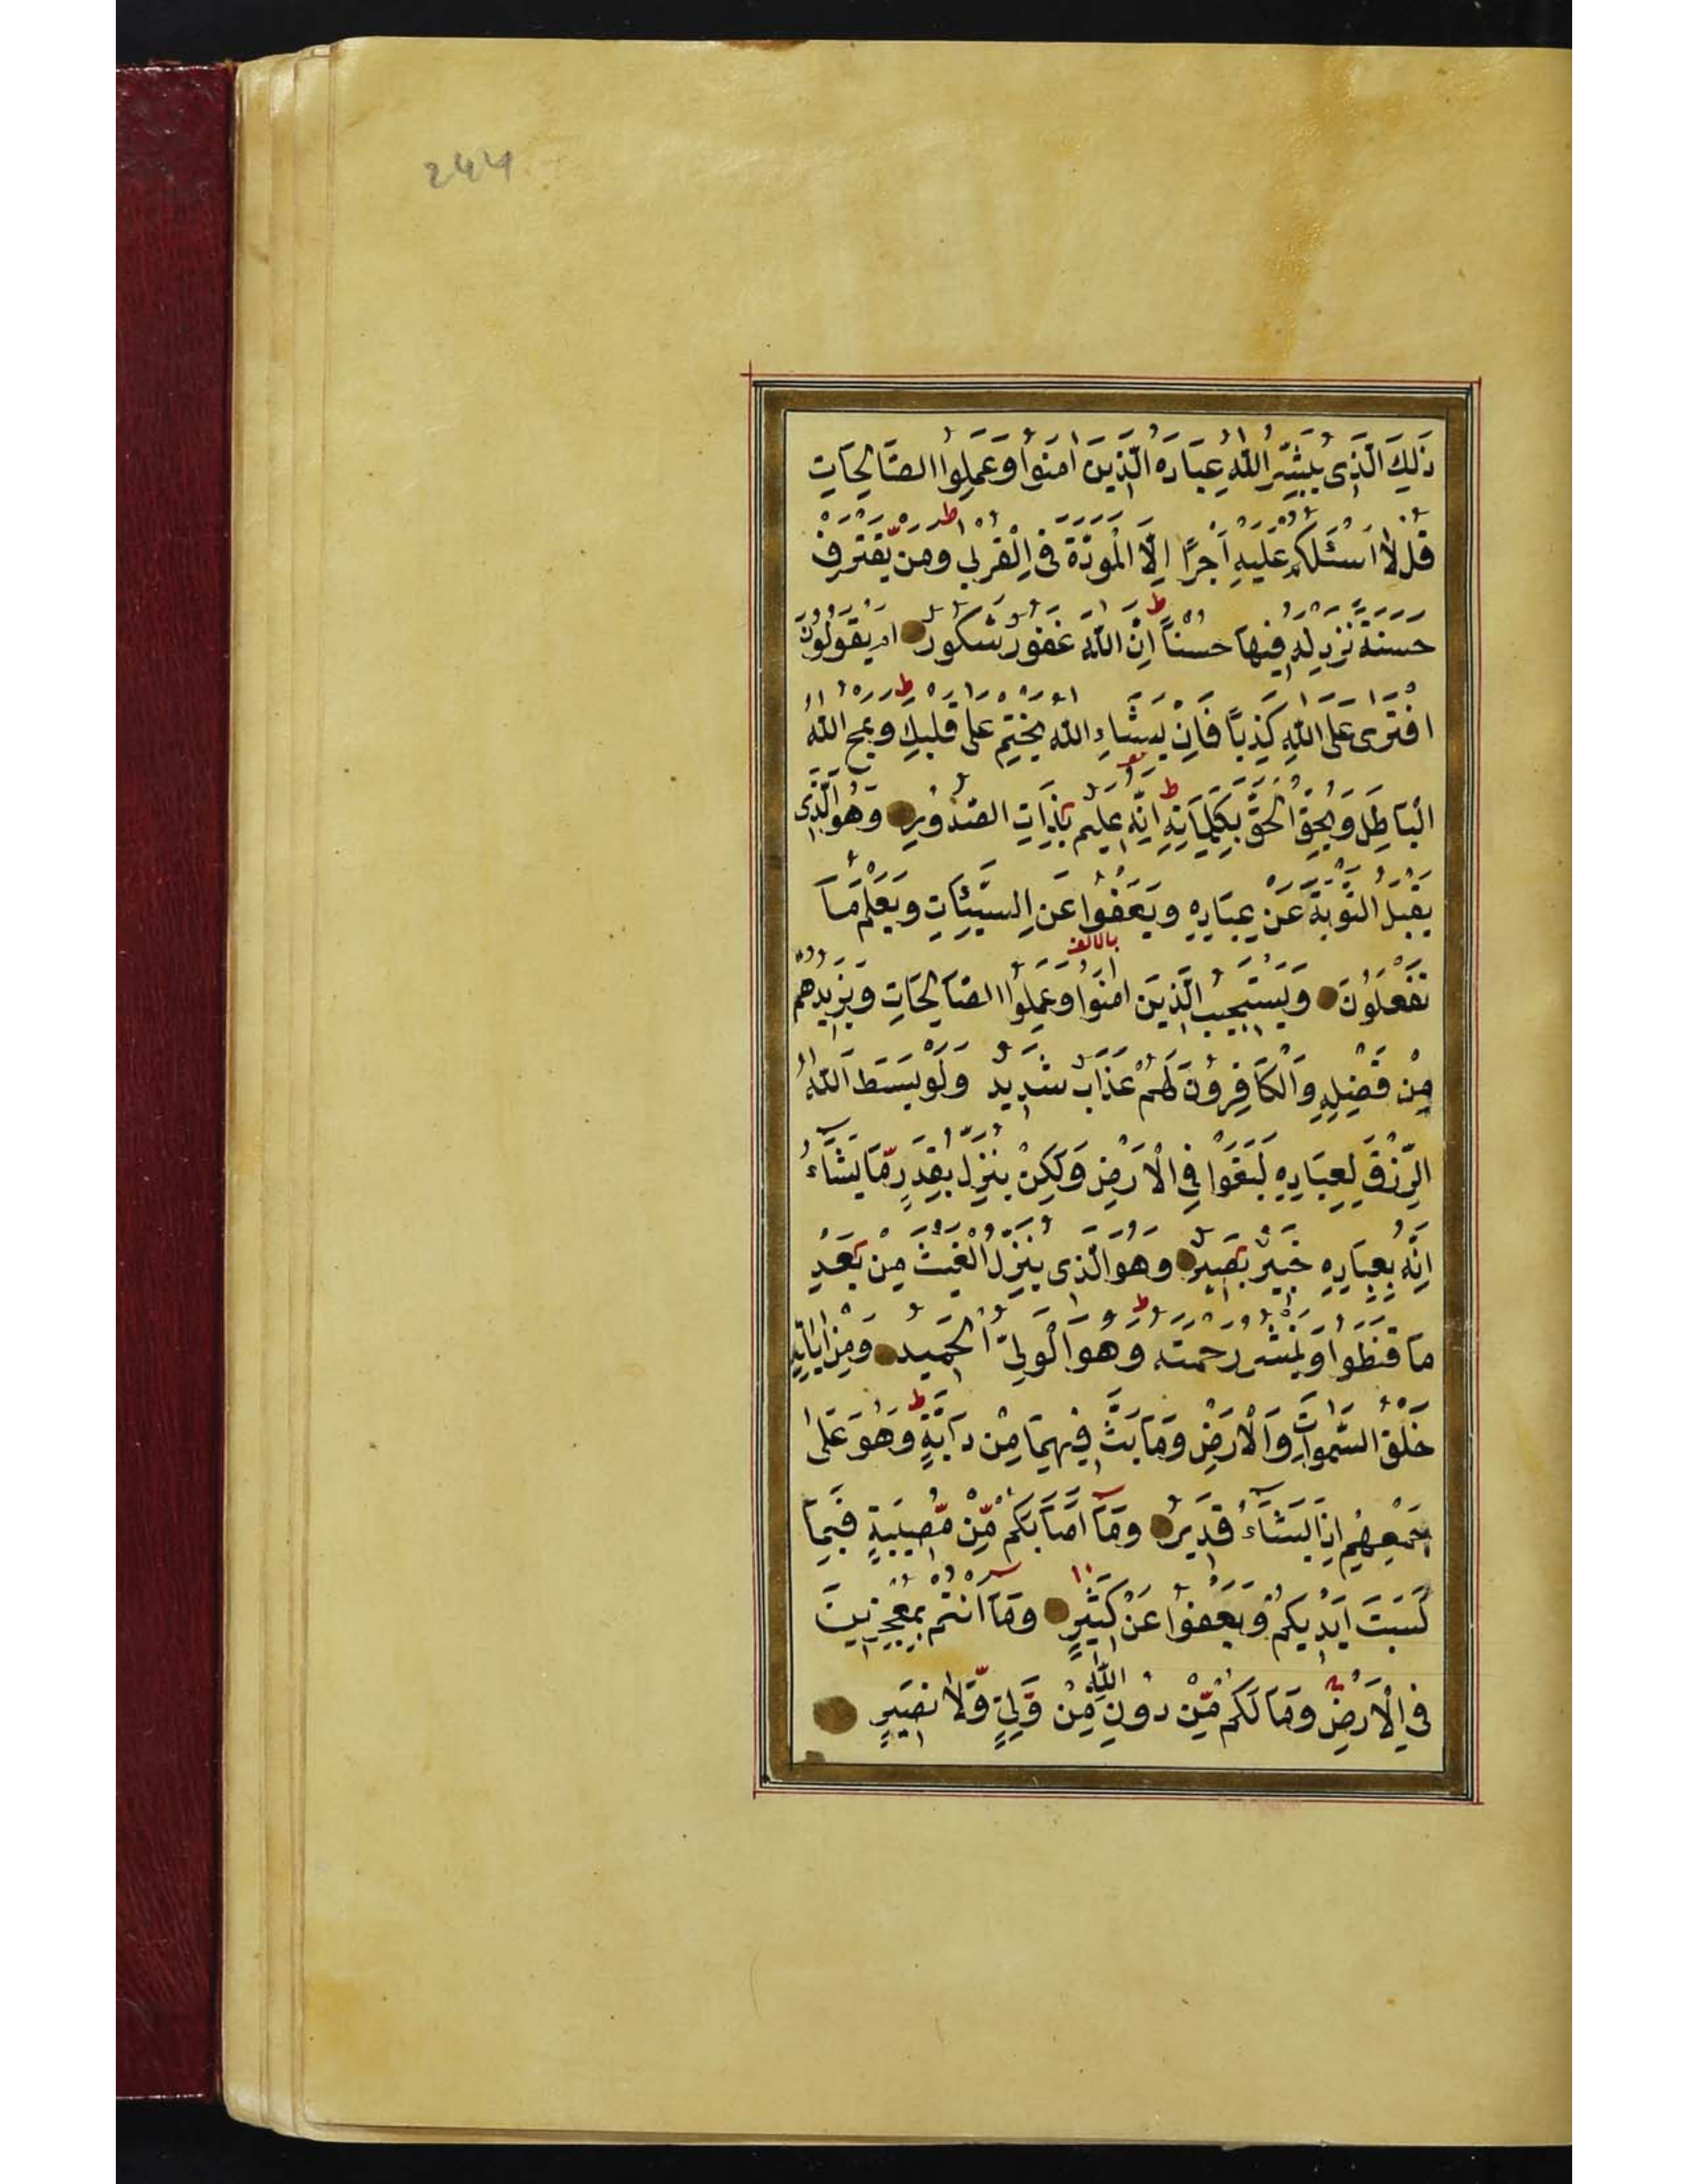 244
ذٰلِكَ الَّذِى يُبَشِّرُ اللّٰهُ عِبَادَهُ الَّذِينَ اٰمَنُوا وَعَمِلُوا الصَّالِحَاتِ
قُلْ لَا اَسْئَلُكُمْ عَلَيْهِ اَجْرًا اِلَّا الْمَوَدَّةَ فِى الْقُرْبٰى ط وَمَنْ يَّقْتَرِفْ
حَسَنَةً نَزِدْ لَهُ فِيْهَا حُسْنًا ط اِنَّ اللّٰهَ غَفُوْرٌ شَكُوْرٌ اَمْ يَقُوْلُوْنَ
افْتَرٰى عَلَى اللّٰهِ كَذِبًا فَاِنْ يَشَاءِ اللّٰهُ يَخْتِمْ عَلٰى قَلْبِكَ ط وَيَمْحُ اللّٰهُ
الْبَاطِلَ وَيُحِقُّ الْحَقَّ بِكَلِمَاتِهِ ط اِنَّهُ عَلِيْمٌ بِذَاتِ الصُّدُوْرِ وَهُوَ الَّذِى
يَقْبَلُ التَّوْبَةَ عَنْ عِبَادِهِ وَيَعْفُوْا عَنِ السَّيِّئَاتِ وَيَعْلَمُ مَا
بالالف
تَفْعَلُوْنَ وَيَسْتَجِيْبُ الَّذِيْنَ اٰمَنُوْا وَعَمِلُوا الصَّالِحَاتِ وَيَزِيْدُهُمْ
مِنْ فَضْلِهِ وَالْكَافِرُوْنَ لَهُمْ عَذَابٌ شَدِيْدٌ وَلَوْ بَسَطَ اللّٰهُ
الرِّزْقَ لِعِبَادِهِ لَبَغَوْا فِى الْاَرْضِ وَلٰكِنْ يُنَزِّلُ بِقَدَرٍ مَّا يَشَآءُ
اِنَّهُ بِعِبَادِهِ خَبِيْرٌ بَصِيْرٌ وَهُوَ الَّذِى يُنَزِّلُ الْغَيْثَ مِنْ بَعْدِ
مَا قَنَطُوْا وَيَنْشُرُ رَحْمَتَهُ ط وَهُوَ الْوَلِىُّ الْحَمِيْدُ وَمِنْ اٰيَاتِهِ
خَلْقُ السَّمٰوَاتِ وَالْاَرْضِ وَمَا بَثَّ فِيْهِمَا مِنْ دَآبَّةٍ ط وَهُوَ عَلٰى
جَمْعِهِمْ اِذَا يَشَآءُ قَدِيْرٌ وَمَآ اَصَابَكُمْ مِّنْ مُّصِيْبَةٍ فَبِمَا
كَسَبَتْ اَيْدِيْكُمْ وَيَعْفُوْا عَنْ كَثِيْرٍ وَمَآ اَنْتُمْ بِمُعْجِزِيْنَ
فِى الْاَرْضِ وَمَا لَكُمْ مِّنْ دُوْنِ اللّٰهِ مِنْ وَّلِىٍّ وَّلَا نَصِيْرٍ